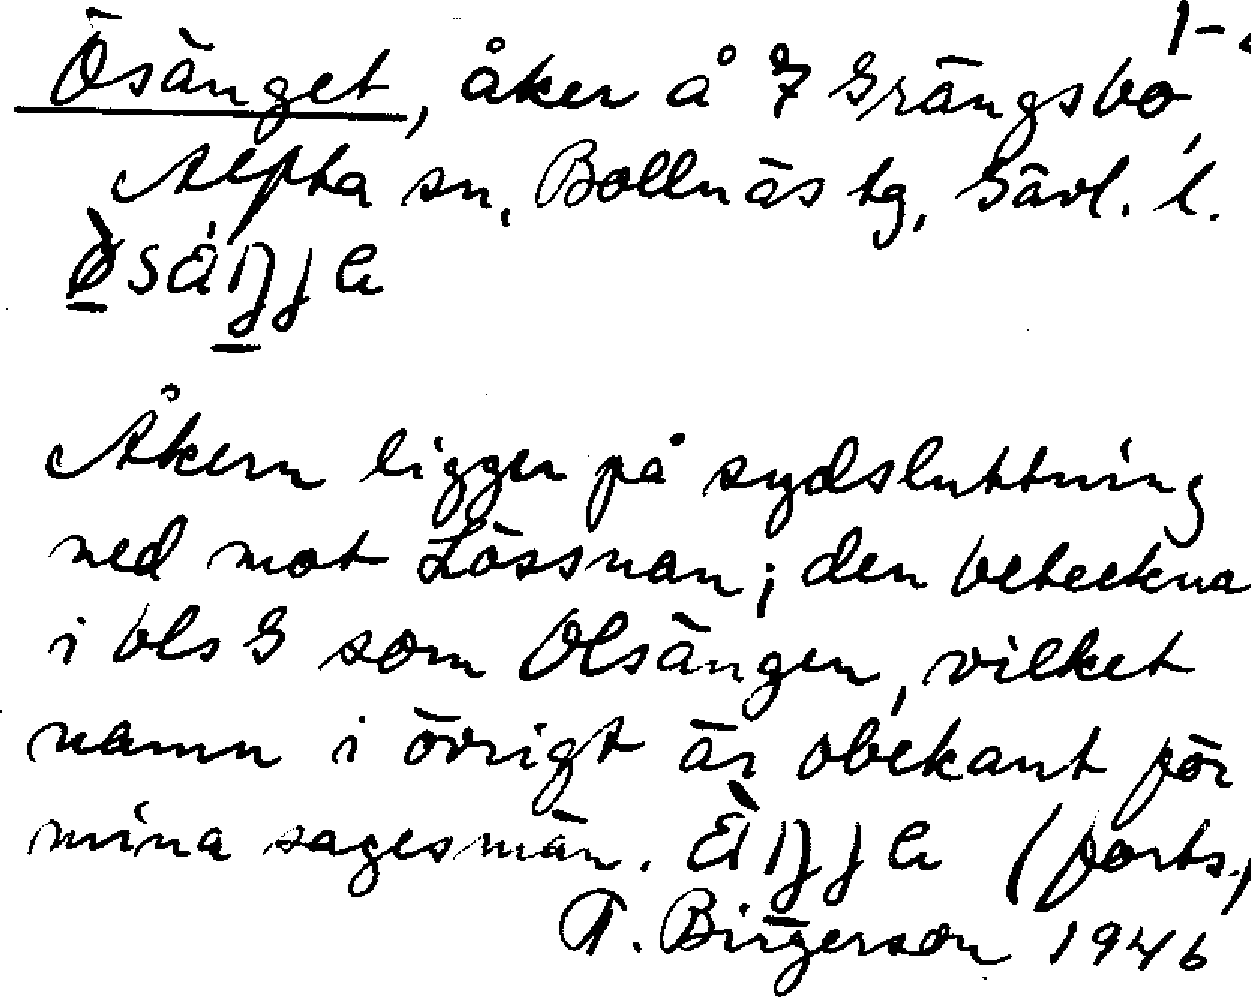 1-
Ösänget, åker å 7 Grängsbo,
Alfta sn, Bollnäs tg, Gävl. l.
Åkern ligger på sydsluttning
ned mot Lössnan; den beteckna
i bls G som Olsängen, vilket
namn i övrigt är obekant för
mina sagesmän. (forts.)
T. Birgerson 1946